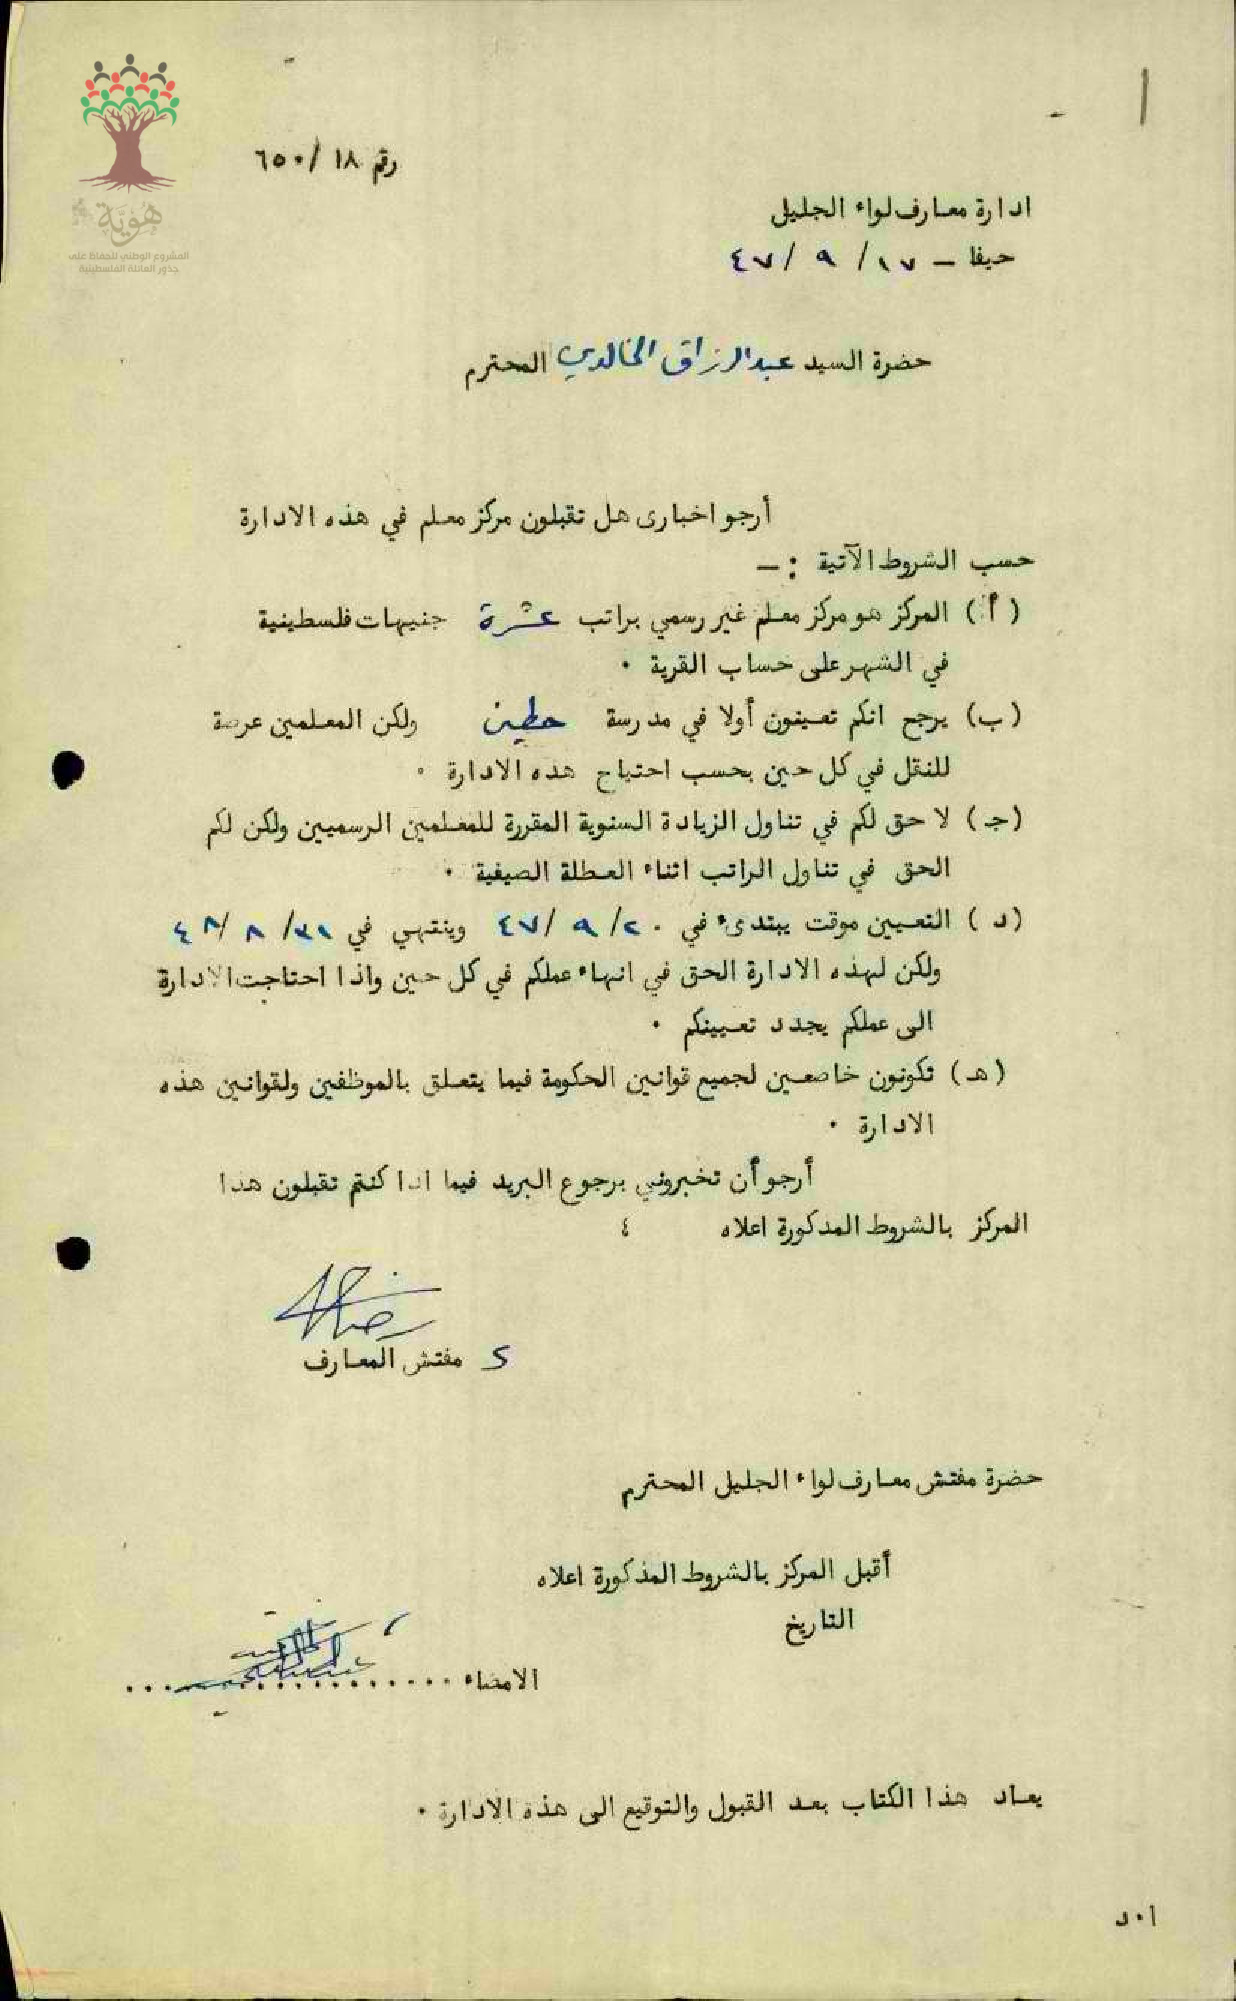 هُوِيَّة
المشروع الوطني للحفاظ على
جذور العائلة الفلسطينية
رقم ١٨ /٦٥٠
ادارة معارف لواء الجليل
حيفا – ١٧/ ٩ /٤٧
حضرة السيد عبد الرزاق الخالدي المحترم
أرجو اخبارى هل تقبلون مركز معلم في هذه الادارة
حسب الشروط الآتية :–
(أ) المركز هو مركز معلم غير رسمي براتب عشرة جنيهات فلسطينية
في الشهر على حساب القرية ٠
(ب) يرجح انكم تعينون أولا في مدرسة حطين ولكن المعلمين عرضة
للنقل في كل حين بحسب احتياج هذه الادارة ٠
(ج) لا حق لكم في تناول الزيادة السنوية المقررة للمعلمين الرسميين ولكن لكم
الحق في تناول الراتب اثناء العطلة الصيفية ٠
(د) التعيين موقت يبتدىء في ٢٠/ ٩ /٤٧ وينتهي في ٣١/ ٨ /٤٨
ولكن لهذه الادارة الحق في انهاء عملكم في كل حين واذا احتاجت الادارة
الى عملكم يجدد تعيينكم ٠
(هـ) تكونون خاضعين لجميع قوانين الحكومة فيما يتعلق بالموظفين ولقوانين هذه
الادارة ٠
أرجو أن تخبروني برجوع البريد فيما اذا كنتم تقبلون هذا
المركز بالشروط المذكورة اعلاه ٤
مفتش المعارف
حضرة مفتش معارف لواء الجليل المحترم
أقبل المركز بالشروط المذكورة اعلاه
التاريخ
الامضاء ..................
يعاد هذا الكتاب بعد القبول والتوقيع الى هذه الادارة ٠
أ٠د